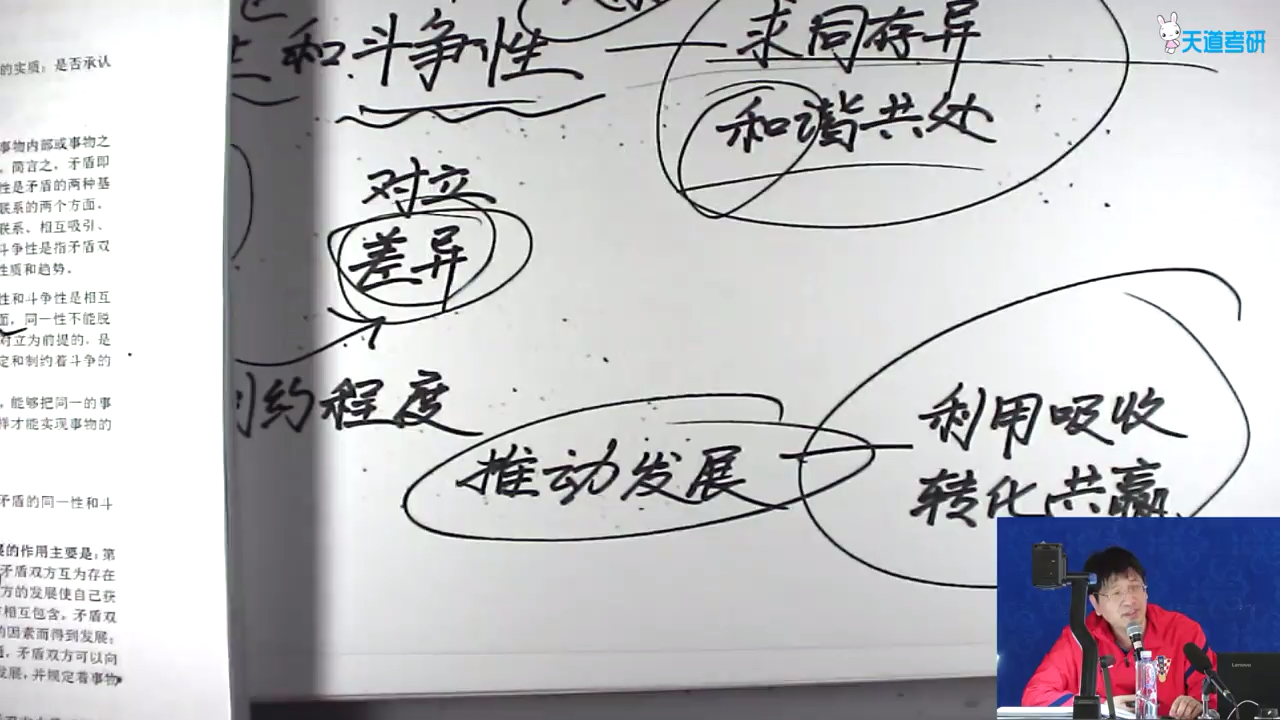 的实质：是否承认
事物内部或事物之
。简言之，矛盾即
性是矛盾的两种基
联系的两个方面。
联系、相互吸引、
斗争性是指矛盾双
性质和趋势。
性和斗争性是相互
面，同一性不能脱
对立为前提的。是
定和制约着斗争的
，能够把同一的事
样才能实现事物的
矛盾的同一性和斗
展的作用主要是：第
矛盾双方互为存在
方的发展使自己获
相互包含，矛盾双
的因素而得到发展；
，矛盾双方可以向
发展，并规定着事物
和斗争性
求同存异
和谐共处
对立
差异
约程度
推动发展
利用吸收
转化共赢
天道考研
Lenovo